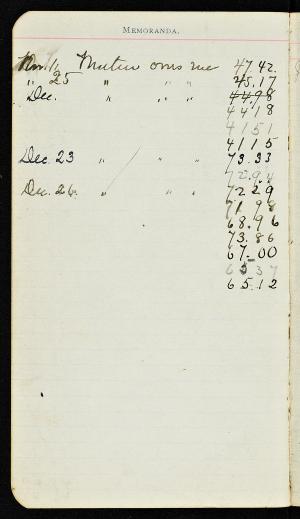 MEMORANDA.
Nov 1, owes me 47 42.
" 25 " " " 45.17
Dec. " " " 44.98
44 18
41 51
41 15
Dec. 23 " " " 73.33
72.94
Dec. 26. " " " 72 29
71 98
68.96
73.86
67.00
65 37
65.12